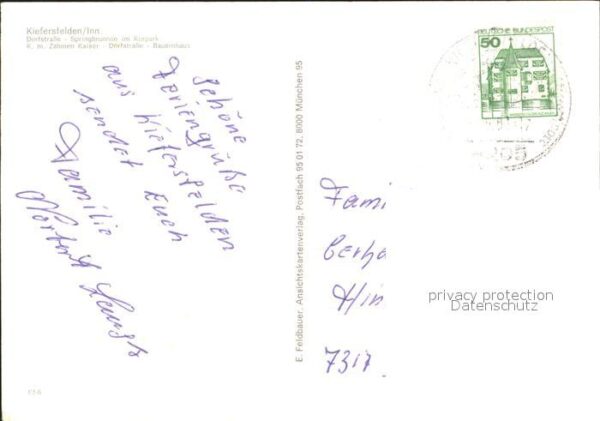 Kiefersfelden/Inn
Dorfstraße - Springbrunnen im Kurpark
K. m. Zahmen Kaiser - Dorfstraße - Bauernhaus
schöne
Feriengrüße
aus Kiefersfelden
sendet Euch
Familie
Norbert
E. Feldbauer, Ansichtskartenverlag, Postfach 95 01 72, 8000 München 95
DEUTSCHE BUNDESPOST
50
Fami
Gerha
Hin
7317
privacy protection
Datenschutz